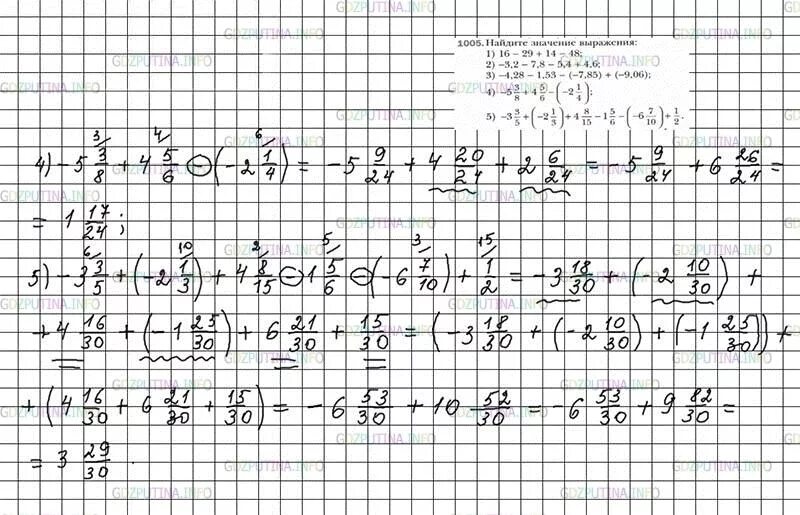 GDZPUTINA.INFO
1005. Найдите значение выражения:
1) 16 − 29 + 14 − 48;
2) −3,2 − 7,8 − 5,4 + 4,6;
3) −4,28 − 1,53 − (−7,85) + (−9,06);
4) −5 3/8 + 4 5/6 − (−2 1/4);
5) −3 3/5 + (−2 1/3) + 4 8/15 − 1 5/6 − (−6 7/10) + 1/2.
3/ 4/ 6/
4) −5 3/8 + 4 5/6 − (−2 1/4) = −5 9/24 + 4 20/24 + 2 6/24 = −5 9/24 + 6 26/24 =
= 1 17/24;
6/ 10/ 2/ 5/ 3/ 15/
5) −3 3/5 + (−2 1/3) + 4 8/15 − 1 5/6 − (−6 7/10) + 1/2 = −3 18/30 + (−2 10/30) +
+ 4 16/30 + (−1 25/30) + 6 21/30 + 15/30 = (−3 18/30 + (−2 10/30) + (−1 25/30)) +
+ (4 16/30 + 6 21/30 + 15/30) = −6 53/30 + 10 52/30 = −6 53/30 + 9 82/30 =
= 3 29/30.